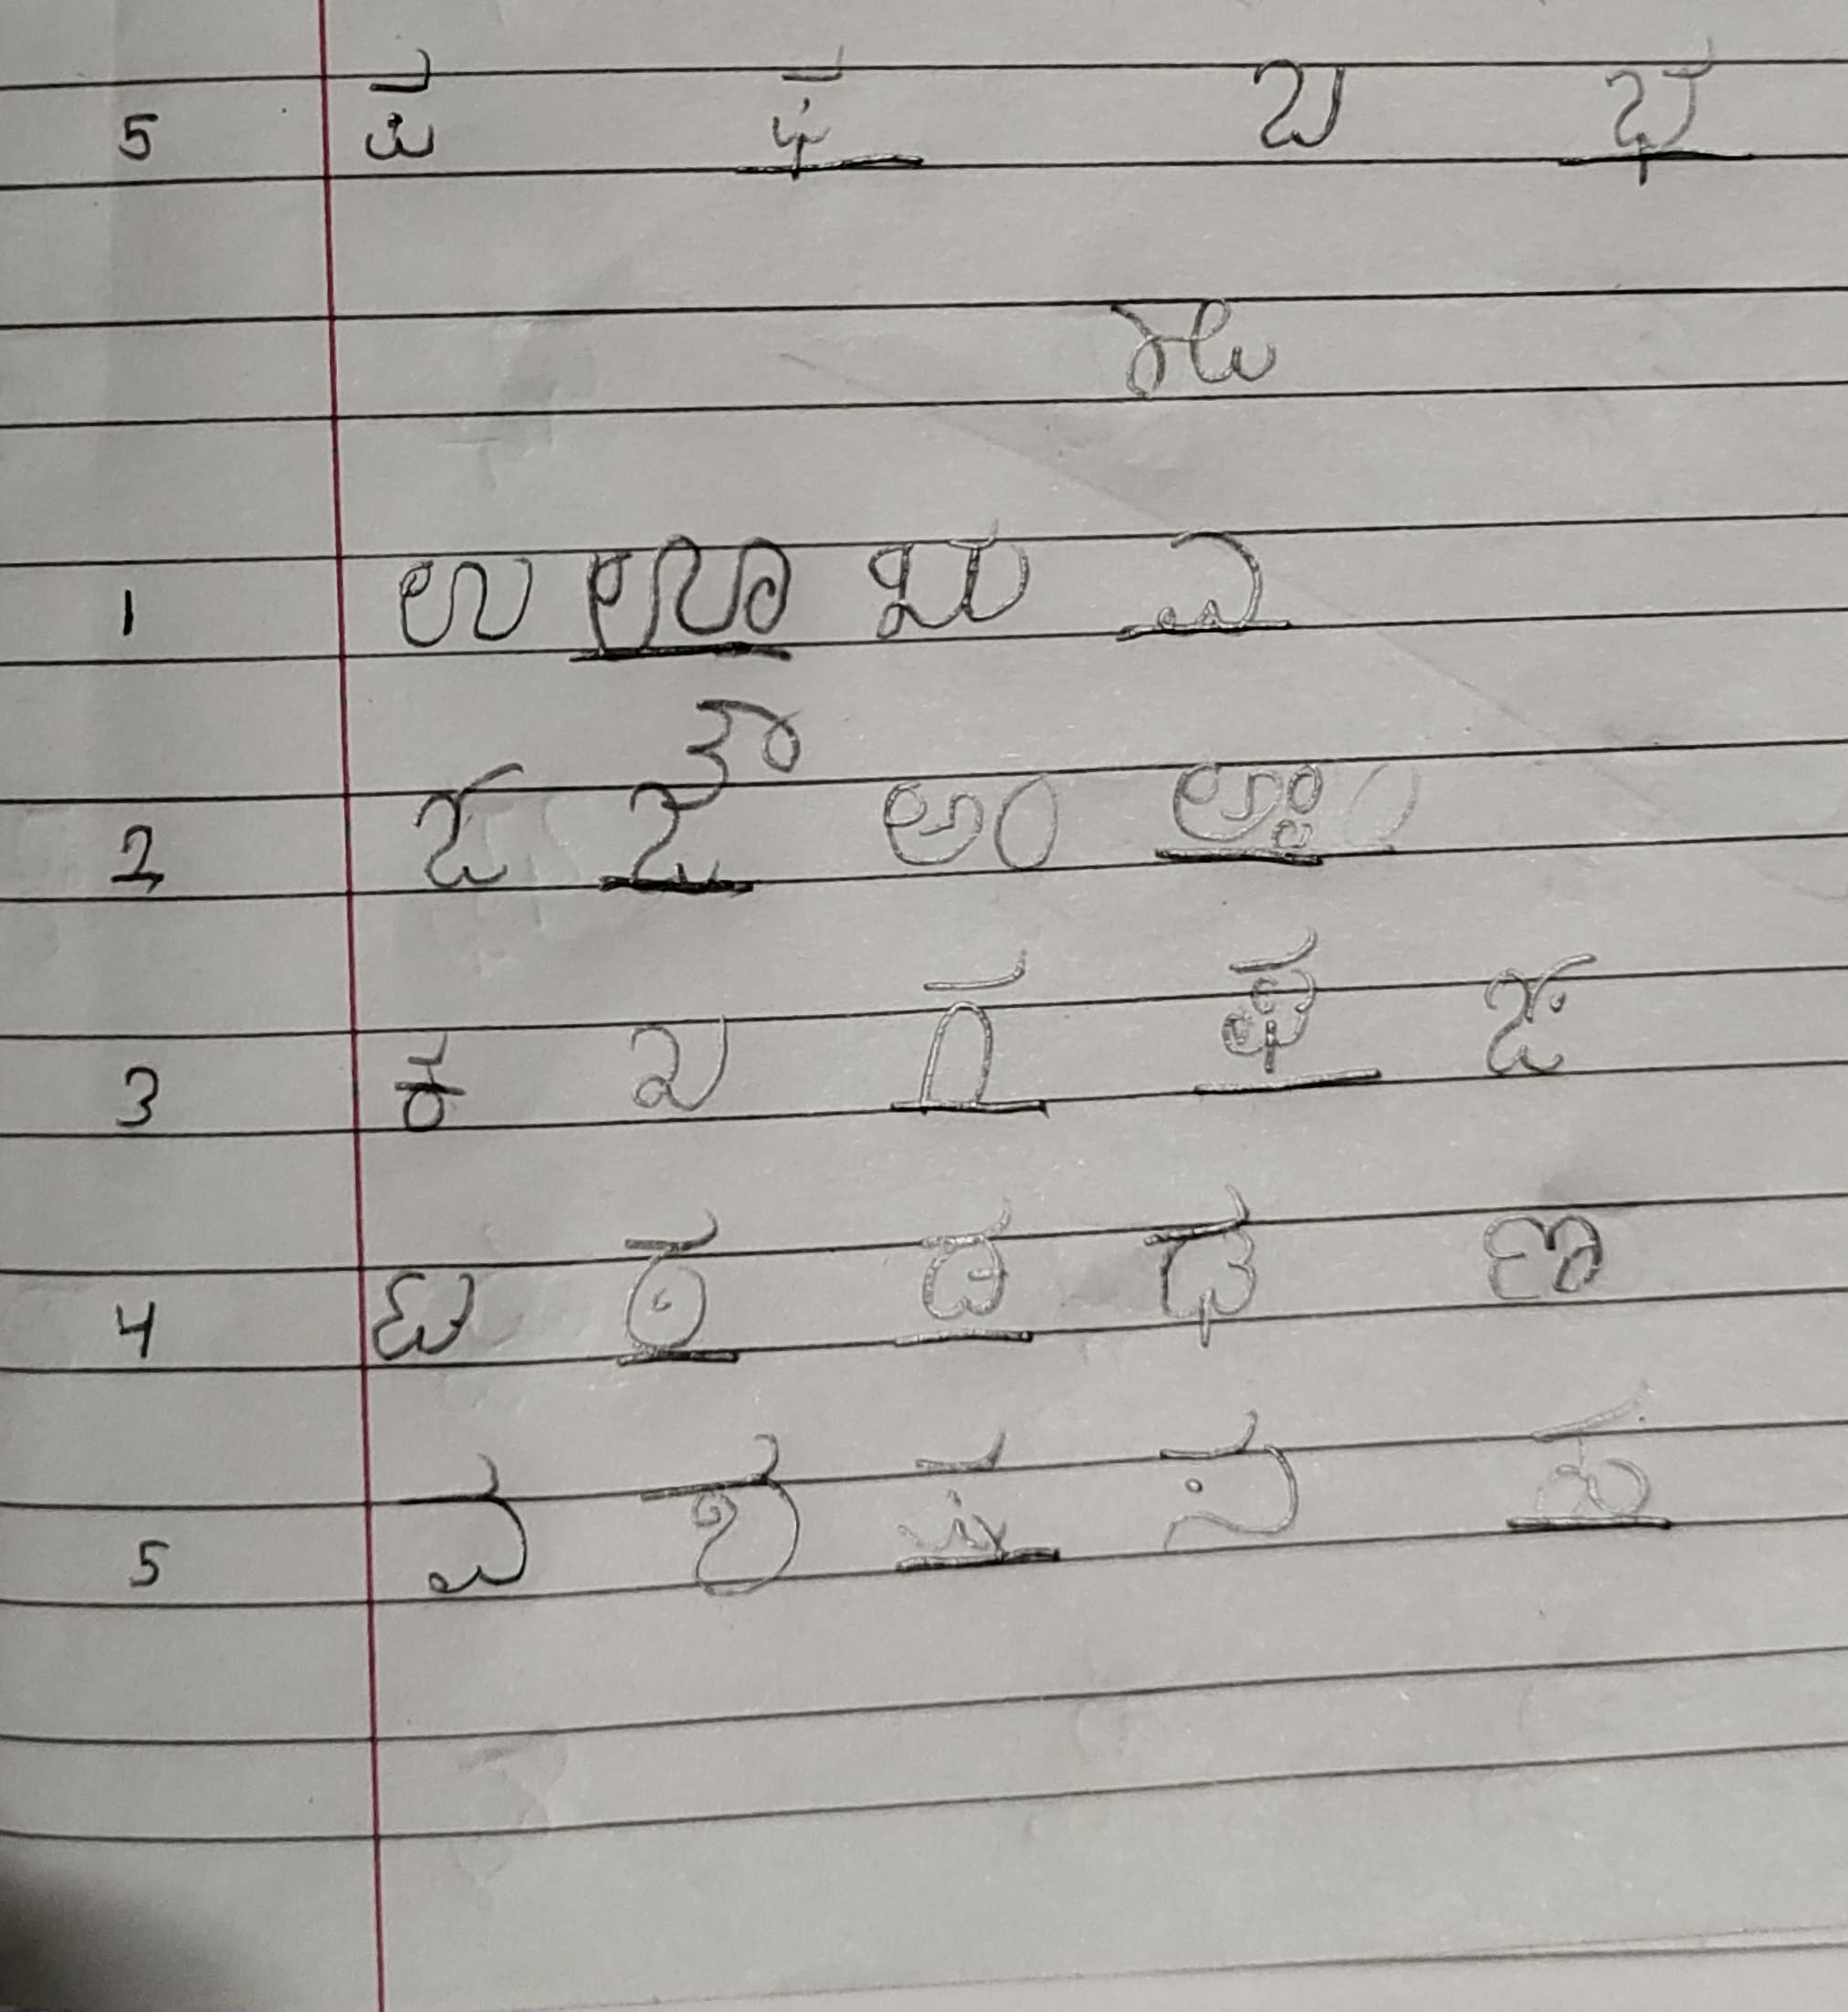 5 ಪ ಫ ಬ ಭ
1 ಉ ಊ ಋ ಎ
2 ಓ ಔ ಅಂ ಅಃ
3 ಕ ಖ ಗ ಘ ಙ
4 ಟ ಠ ಡ ಢ ಣ
5 ವ ಶ ಷ ಸ ಹ